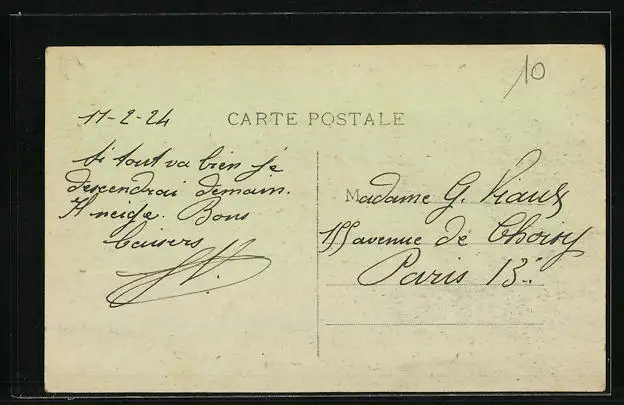 10
17-2-24
CARTE POSTALE
Si tout va bien je
descendrai demain.
Il neige. Bons
baisers
Madame G. Viaux
155 avenue de Choisy
Paris 13e